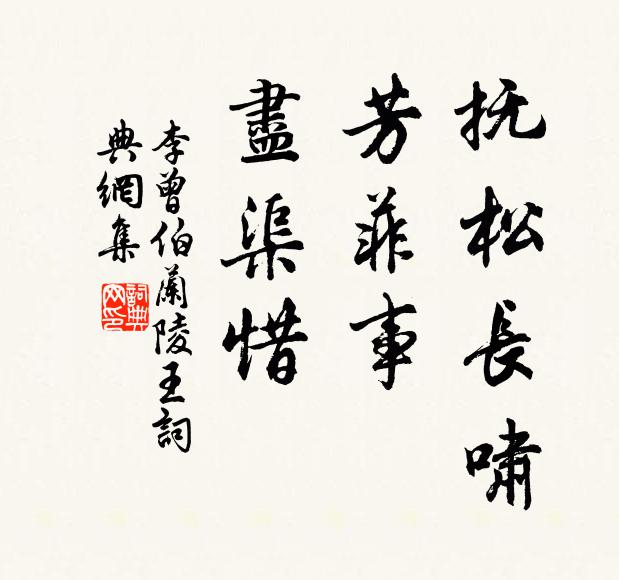 抚松長嘯
芳菲事
盡渠惜
李曾伯蘭陵王詞
典網集
詞典
网印